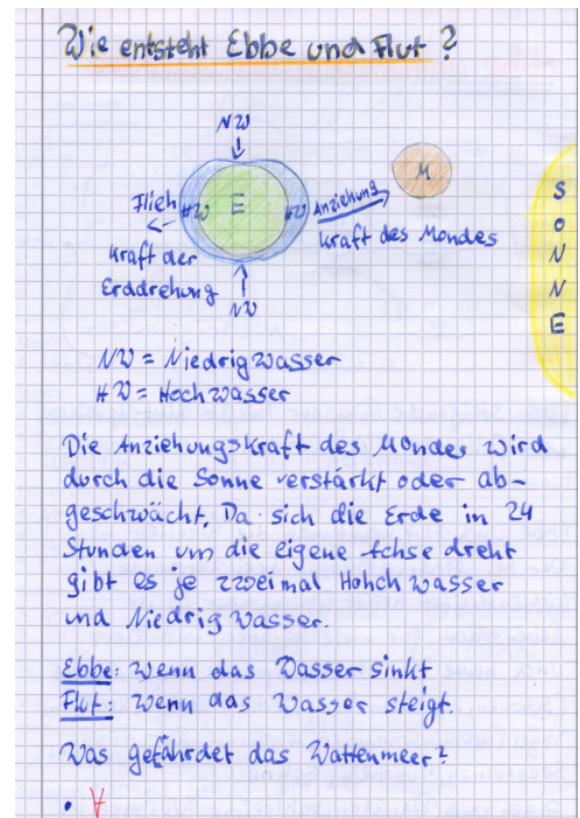 Wie entsteht Ebbe und Flut?
NW
M
Flieh
HW
E
HW
Anziehung
Kraft der
Kraft des Mondes
Erddrehung
NW
SONNE
NW = Niedrigwasser
HW = Hochwasser
Die Anziehungskraft des Mondes wird
durch die Sonne verstärkt oder ab-
geschwächt, Da sich die Erde in 24
Stunden um die eigene Achse dreht
gibt es je zweimal Hohchwasser
und Niedrigwasser.
Ebbe: Wenn das Wasser sinkt
Flut: Wenn das Wasser steigt.
Was gefährdet das Wattenmeer?